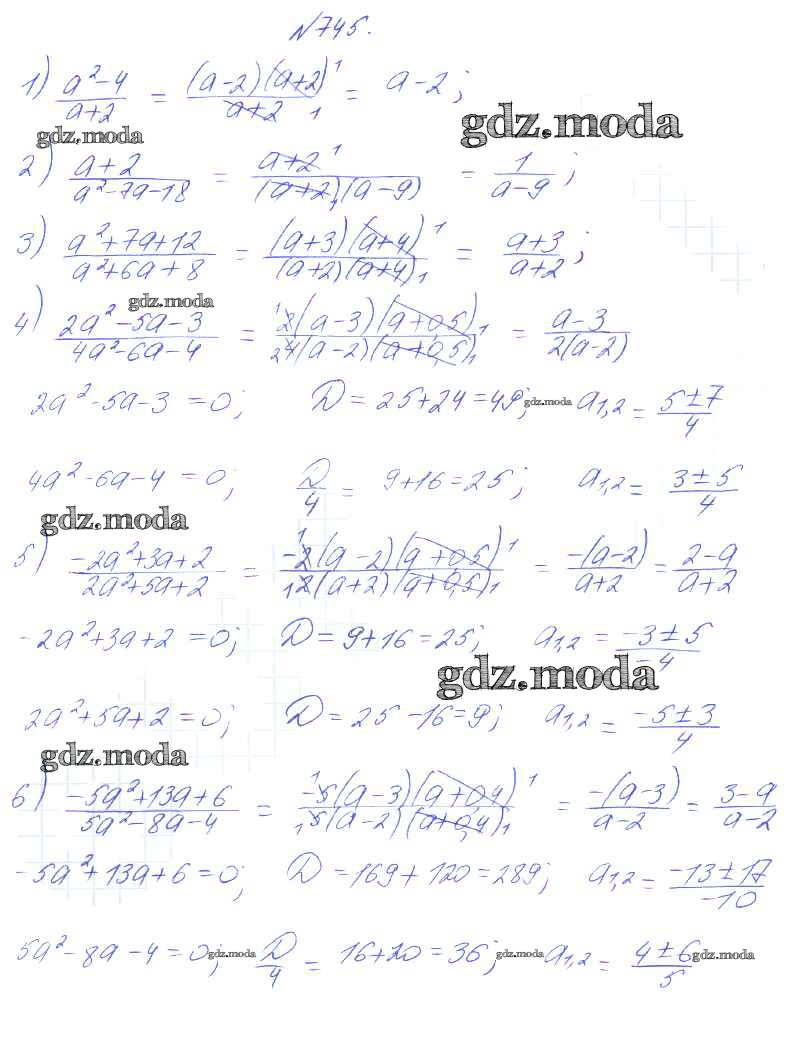 №745.
1) (a²-4)/(a+2) = ((a-2)(a+2)¹)/(a+2 ₁) = a-2;
gdz.moda gdz.moda
2) (a+2)/(a²-7a-18) = (a+2 ¹)/((a+2)₁(a-9)) = 1/(a-9);
3) (a²+7a+12)/(a²+6a+8) = ((a+3)(a+4)¹)/((a+2)(a+4)₁) = (a+3)/(a+2);
gdz.moda
4) (2a²-5a-3)/(4a²-6a-4) = (¹2(a-3)(a+0,5)₁)/(₂4(a-2)(a+0,5)₁) = (a-3)/(2(a-2))
2a²-5a-3=0; D=25+24=49; gdz.moda a₁,₂ = (5±7)/4
4a²-6a-4=0; D/4 = 9+16=25; a₁,₂ = (3±5)/4
gdz.moda
5) (-2a²+3a+2)/(2a²+5a+2) = (-¹2(a-2)(a+0,5)¹)/(₁2(a+2)(a+0,5)₁) = (-(a-2))/(a+2) = (2-a)/(a+2)
-2a²+3a+2=0; D=9+16=25; a₁,₂ = (-3±5)/(-4)
gdz.moda
2a²+5a+2=0; D=25-16=9; a₁,₂ = (-5±3)/4
gdz.moda
6) (-5a²+13a+6)/(5a²-8a-4) = (-¹5(a-3)(a+0,4)¹)/(₁5(a-2)(a+0,4)₁) = (-(a-3))/(a-2) = (3-a)/(a-2)
-5a²+13a+6=0; D=169+120=289; a₁,₂ = (-13±17)/(-10)
5a²-8a-4=0; gdz.moda D/4 = 16+20=36; gdz.moda a₁,₂ = (4±6)/5 gdz.moda